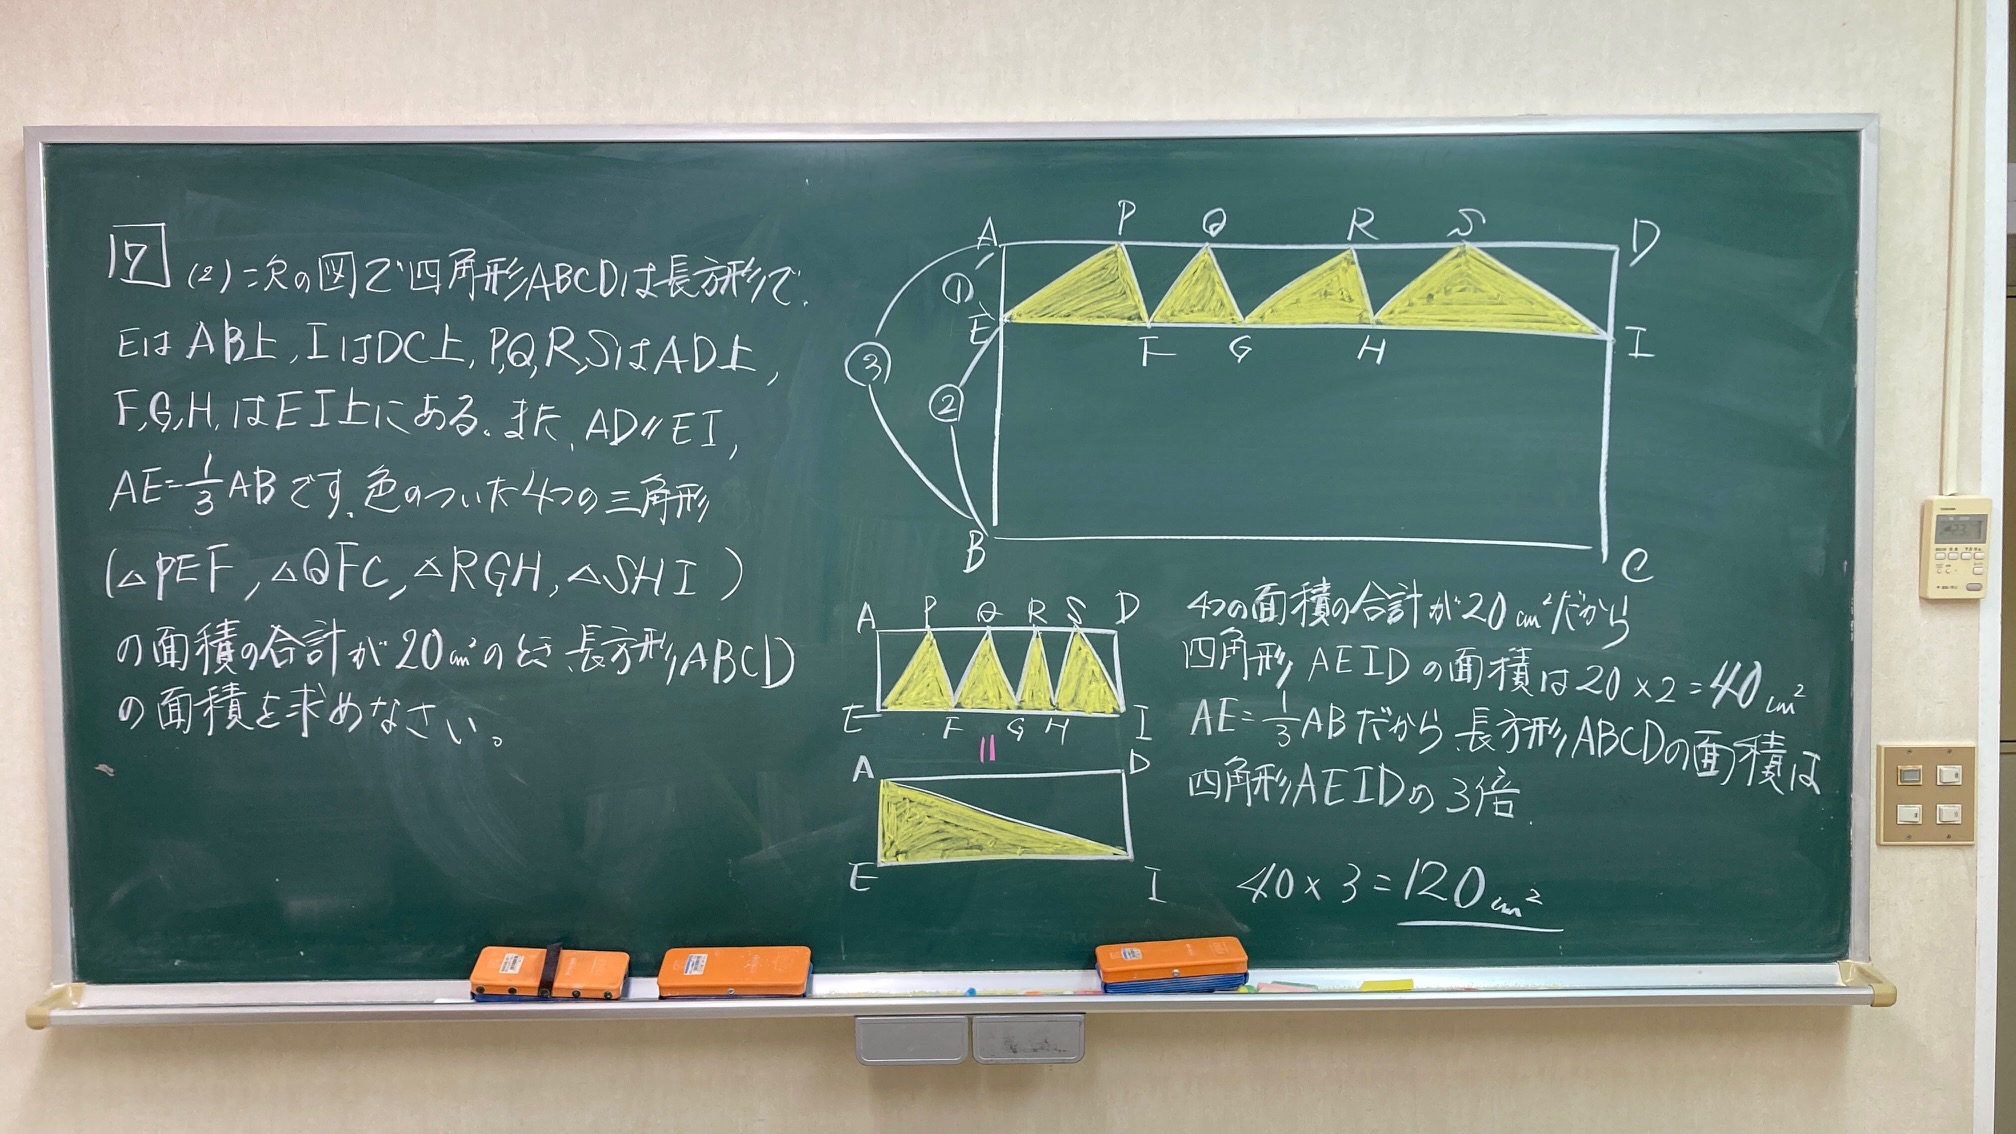 7 (2) 次の図で四角形ABCDは長方形で、
EはAB上,IはDC上,P,Q,R,SはAD上,
F,G,H,はEI上にある。また、AD//EI,
AE=1/3ABです。色のついた4つの三角形
(△PEF,△QFC,△RGH,△SHI)
の面積の合計が20cm²のとき長方形ABCD
の面積を求めなさい。
A P Q R S D
①
E F G H I
③
②
B C
A P Q R S D
E F G H I
=
A D
E I
4つの面積の合計が20cm²だから
四角形AEIDの面積は20×2=40cm²
AE=1/3ABだから長方形ABCDの面積は
四角形AEIDの3倍.
40×3=120cm²